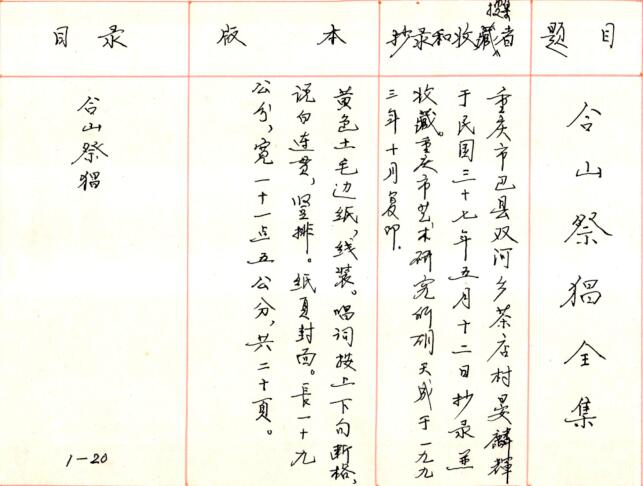 题目
合山祭猖全集
撰者
抄录和收藏
重庆市巴县双河乡茶店村晏麟輝
于民国三十七年五月十二日抄录并
收藏。重庆市艺术研究所胡天成于一九九
三年十月复印.
版本
黄色土毛边纸,线装。唱词按上下句断格,
说白连贯,竖排。纸页封面。長一十九
公分,宽一十一点五公分,共二十页。
目录
合山祭猖
1-20